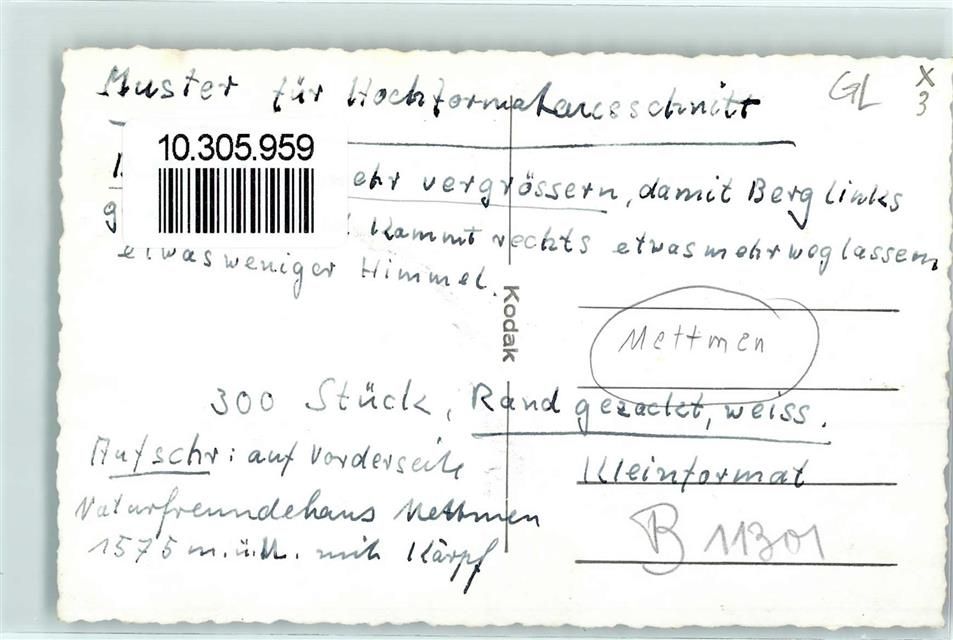 Muster für Hochformatausschnitt
GL
X
3
10.305.959
ehr vergrössern, damit Berg links
Kammt rechts etwas mehr weglassen
etwas weniger Himmel.
Kodak
Mettmen
300 Stück, Rand gezackt, weiss.
Kleinformat
Aufschr: auf Vorderseite
Naturfreundehaus Mettmen
1575 m.ü.M. mit Kärpf
B 11301